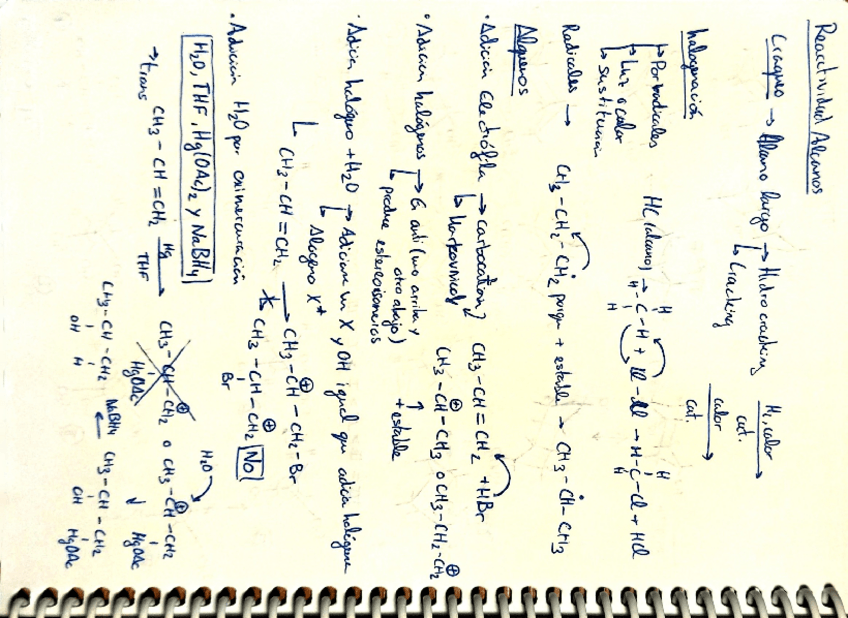 Reactividad Alcanos
Craqueo → Alcano largo → Hidrocracking H₂, calor cat.
↳ Cracking calor cat.
halogenación
→ Por radicales
→ Luz o calor
→ Sustitución
HC (alcano) → H-C-H + Cl-Cl → H-C-Cl + HCl
H H H H
Radicales → CH₃-CH₂-CH₂• porque + estable → CH₃-CH-CH₃
Alquenos
• Adición Electrófila → carbocation CH₃-CH=CH₂ + HBr
↳ Markovnicov CH₃-CH⊕-CH₃ o CH₃-CH₂-CH₂⊕
↑ + estable
• Adición halógenos → Es anti (uno arriba y otro abajo)
↳ produce estereoisomeros
• Adición halógeno + H₂O → Adiciona un X y OH igual que adición halógena
↳ Alogeno X⁺
↳ CH₃-CH=CH₂ → CH₃-CH⊕-CH₂-Br
CH₃-CH-CH₂⊕ No
Br
• Adición H₂O por oximercuración
H₂O, THF, Hg(OAc)₂ y NaBH₄
→ trans CH₃-CH=CH₂ Hg THF → CH₃-CH-CH₂⊕ o CH₃-CH⊕-CH₂
HgOAc HgOAc
H₂O
CH₃-CH-CH₂ NaBH₄ ← CH₃-CH-CH₂
OH H OH HgOAc